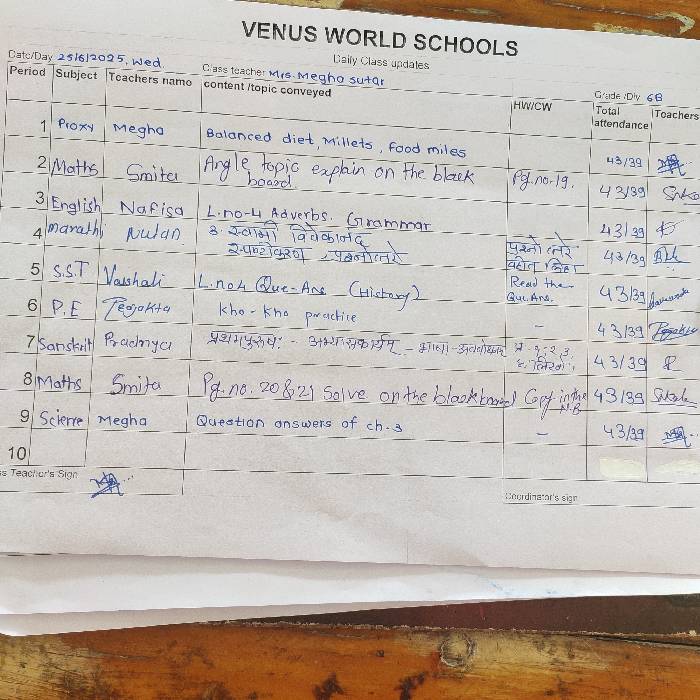 VENUS WORLD SCHOOLS
Daily Class updates
Date/Day 25/6/2025, Wed. Class teacher Mrs. Megha Sutar Grade/Div 6B
Period Subject Teachers name content /topic conveyed HW/CW Total attendance Teachers
1 Proxy Megha Balanced diet, Millets, Food miles 43/39
2 Maths Smita Angle topic explain on the black board Pg. no-19. 43/39
3 English Nafisa L.no-4 Adverbs. Grammar 43/39
4 Marathi Nutan 3. स्वामी विवेकानंद 43/39
स्पष्टीकरण प्रश्नोत्तरे प्रश्नोत्तरे वहीत लिहा
5 S.S.T Vaishali L.no4 Que-Ans (History) Read the Que.Ans. 43/39
6 P.E Tejakta kho-kho practice - 43/39
7 Sanskrit Pradnya प्रथमपुरुषः - अभ्यासकार्यम् - भाषा- 43/39
8 Maths Smita Pg. no. 20 & 21 Solve on the blackboard Copy in the N.B 43/39
9 Science Megha Question answers of ch.3 - 43/39
10
ss Teacher's Sign Coordinator's sign